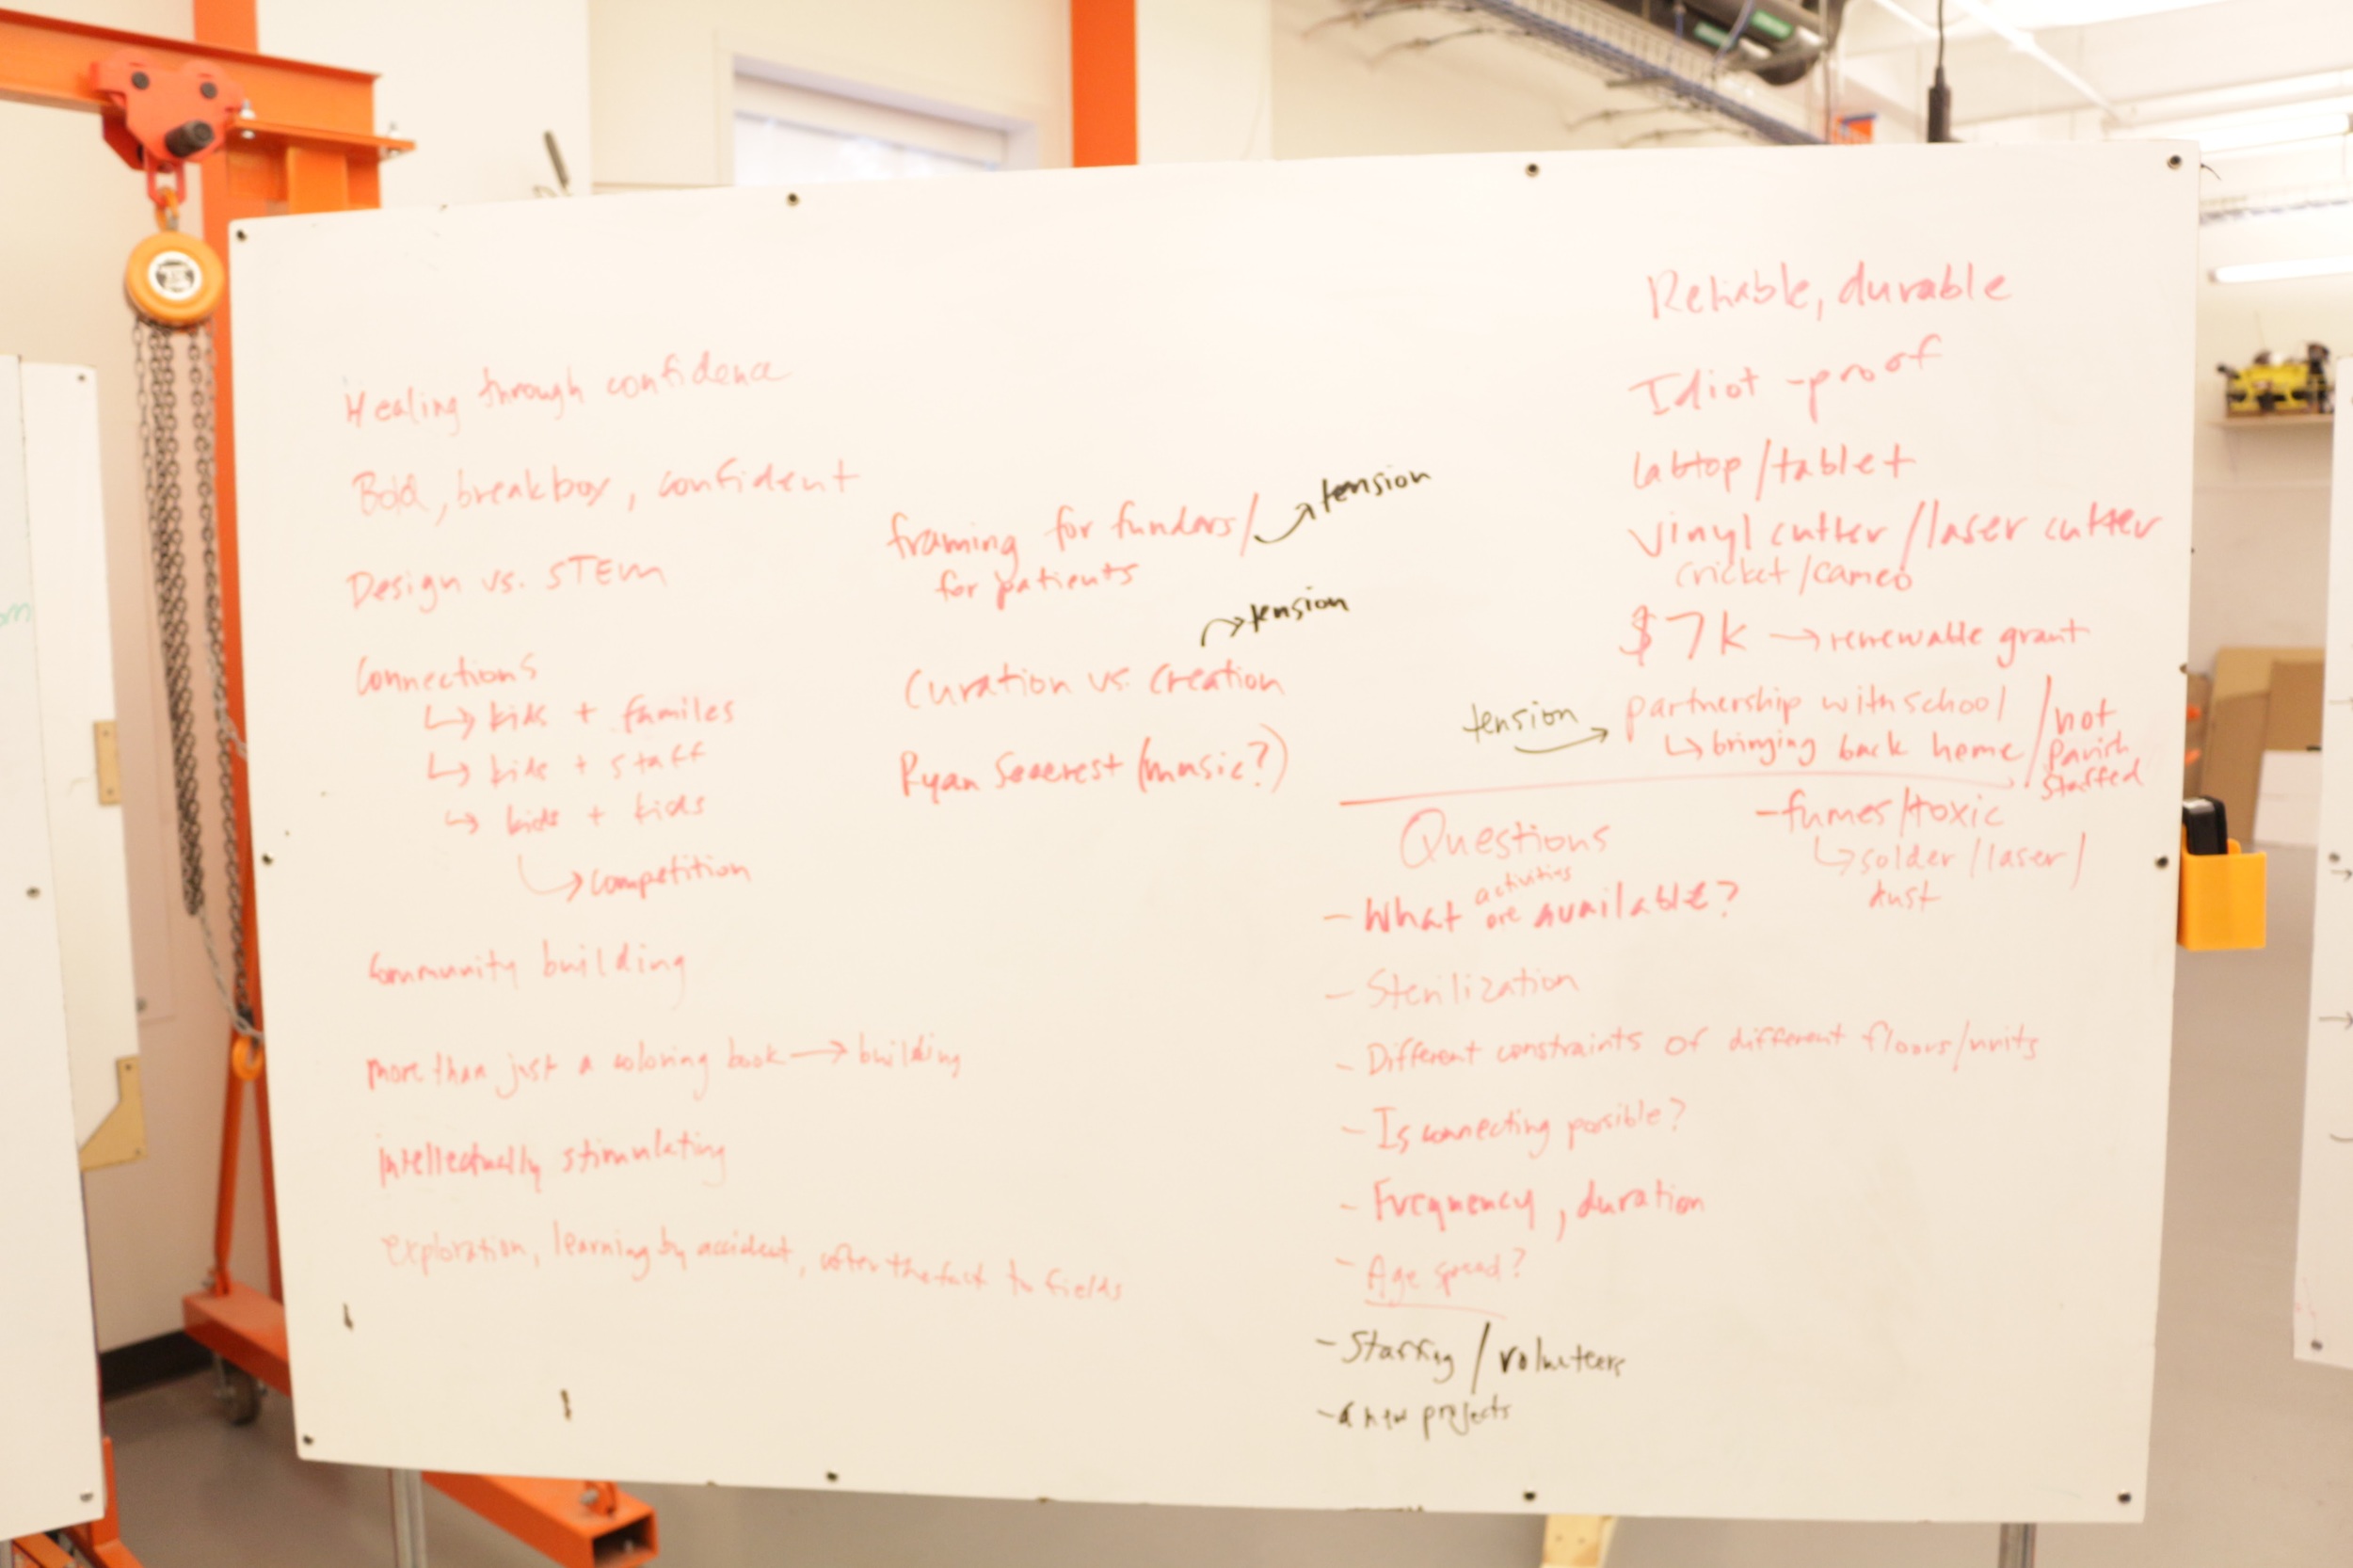 Healing through confidence
Bold, breakbox, confident
Design vs. STEM
Connections
↳ kids + familes
↳ kids + staff
↳ kids + kids
↳ competition
Community building
more than just a coloring book → building
intellectually stimulating
exploration, learning by accident, after the fact to fields
framing for funders/
for patients
tension
tension
Curation vs. Creation
Ryan Seacrest (music?)
Reliable, durable
Idiot-proof
labtop/tablet
vinyl cutter/laser cutter
cricket/cameo
$7K → renewable grant
tension → partnership with school / not
↳ bringing back home
staffed
Questions
- What activities are available?
- Sterilization
- Different constraints of different floors/units
- Is connecting possible?
- Frequency, duration
- Age spread?
- Staffing / volunteers
- new projects
- fumes/toxic
↳ solder/laser/
dust